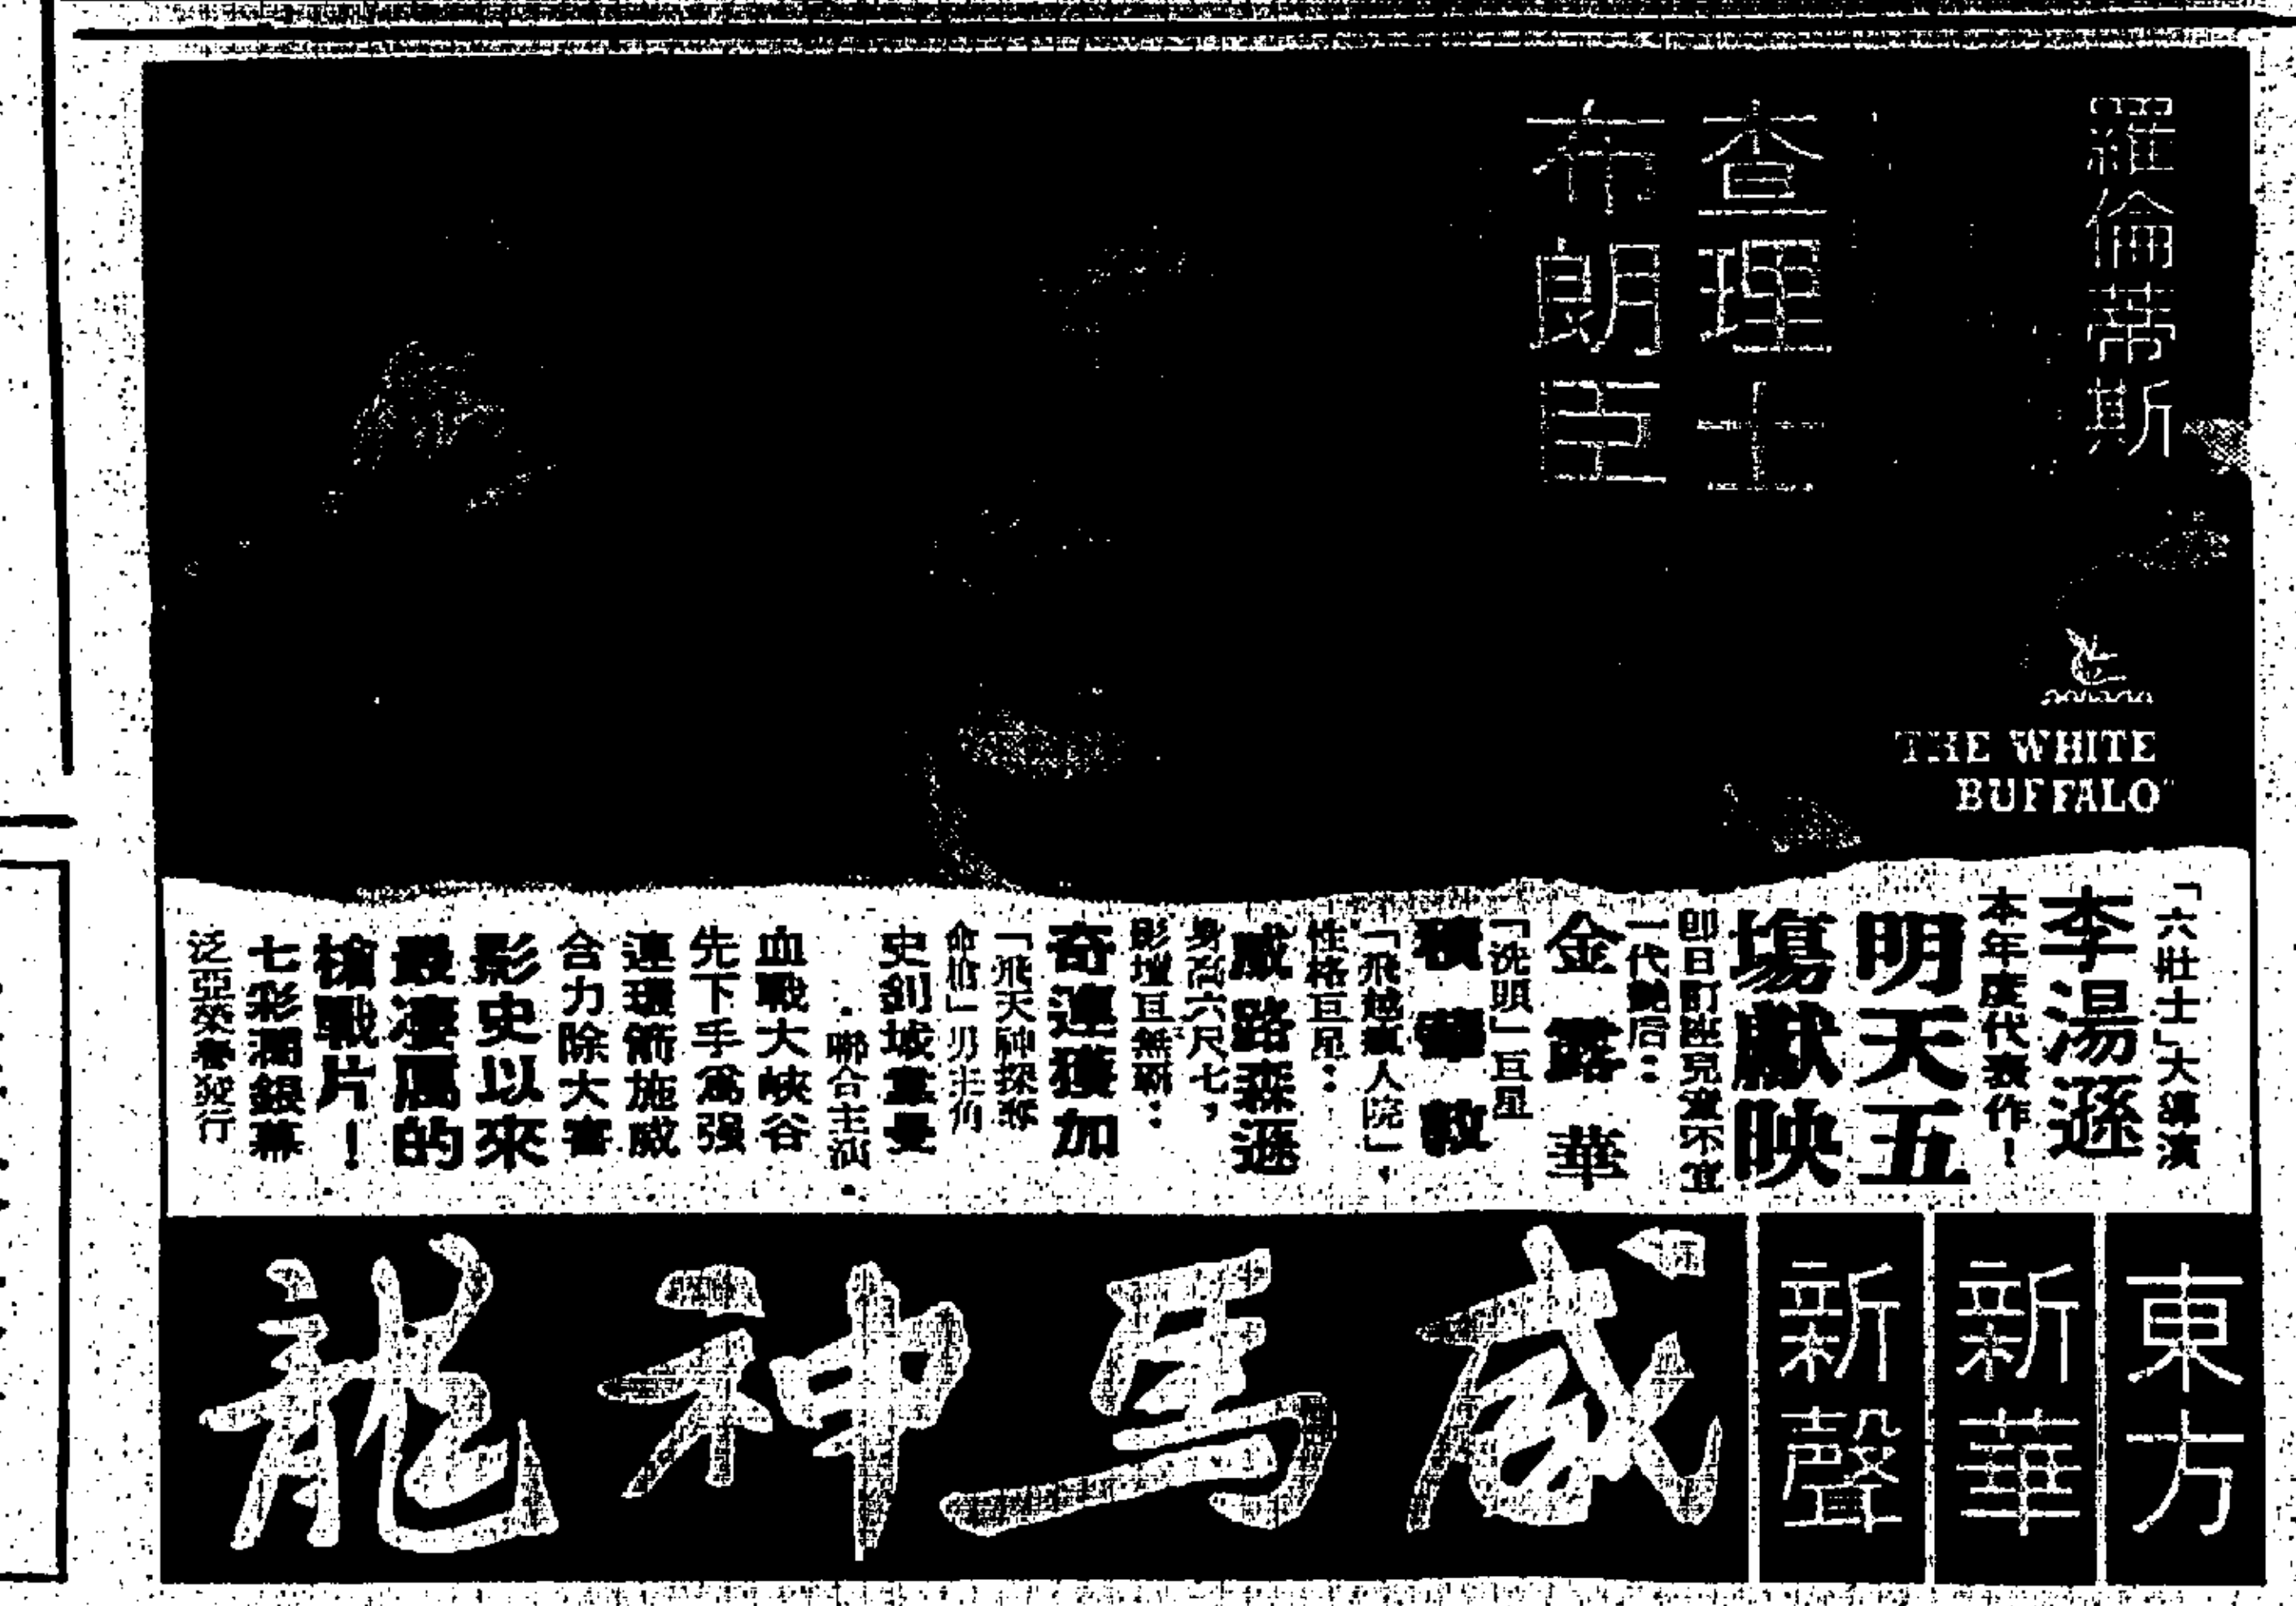 羅倫蒂斯
查理士
布朗臣
THE WHITE
BUFFALO"
「六壯士」大導演
李湯遜
本年度代表作！
明天五
塲獻映
即日訂座兒童不宜
一代艷后：
金露華
「洗頭」巨星
積華敦
「飛越瘋人院」，
性格巨星：
威路森遜
身高六尺七，
影壇亘無霸：
奇連獲加
「飛天神探奪
命槍」男主角
史創域韋曼
‧聯合主演‧
血戰大峽谷
先下手為强
連環箭施威
合力除大害
影史以來
最凄厲的
槍戰片！
七彩濶銀幕
泛亞榮譽發行
東方
新華
新聲
威馬神龍